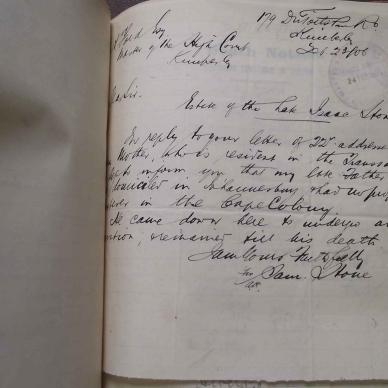 179 Du Toitspan Rd
Kimberley
Feb 23/06
Esq
Master of the High Court
Kimberley
Dear Sir.
Estate of the late Isaac Stone
In reply to your letter of 22nd addressed
Mother, who is resident in the Transvaal
to inform you that my late Father
domiciled in Johannesburg & had no prop
in the Cape Colony
He came down here to undergo an
& remained till his death
I am Yours Faithfully
Sam. Stone